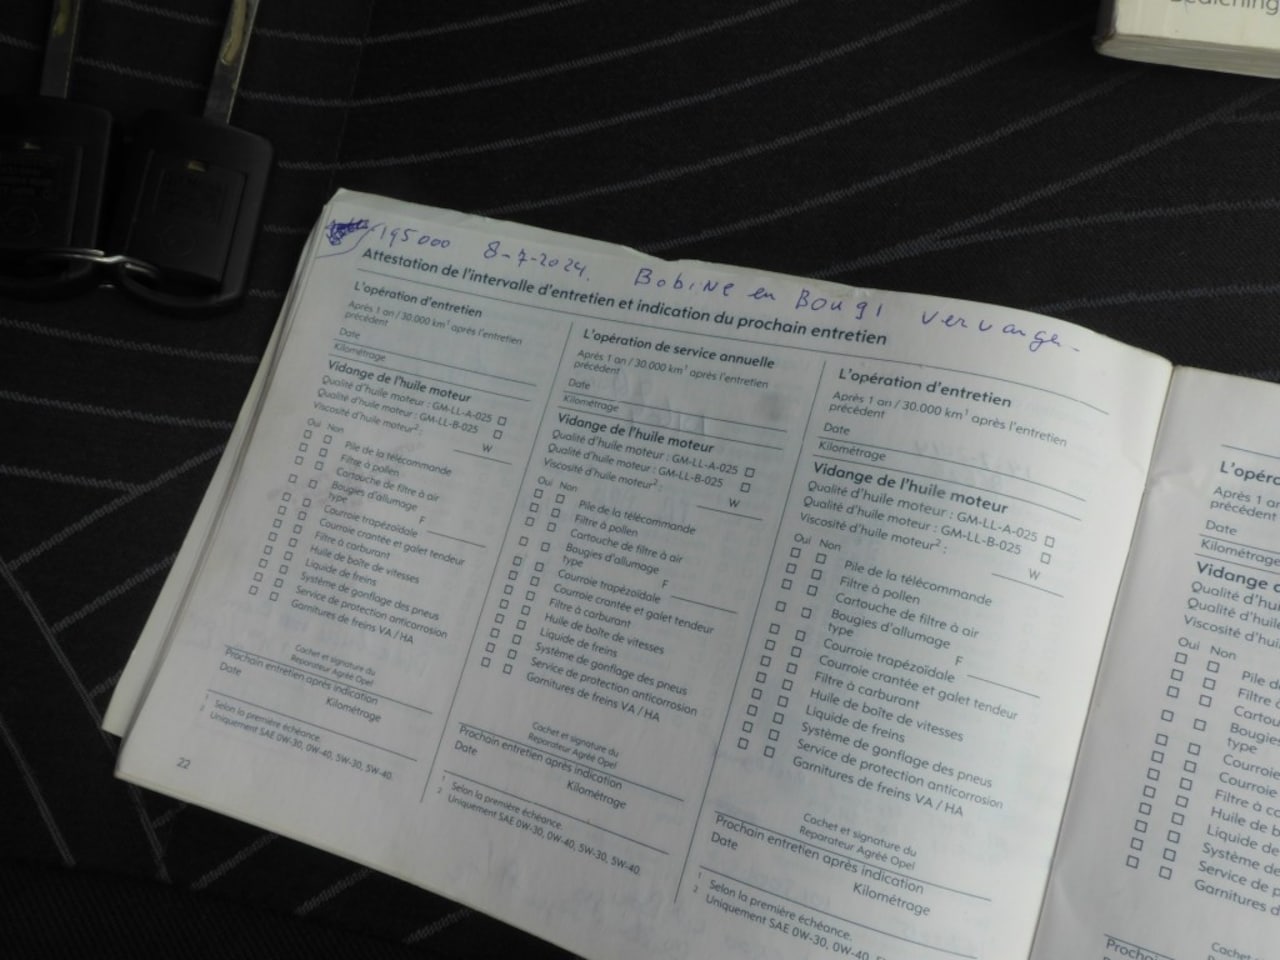 195000 8-7-2024. Bobine en Bougi vervange-
Attestation de l'intervalle d'entretien et indication du prochain entretien
L'opération d'entretien
Après 1 an / 30.000 km¹ après l'entretien
précédent
Date
Kilométrage
Vidange de l'huile moteur
Qualité d'huile moteur : GM-LL-A-025 □
Qualité d'huile moteur : GM-LL-B-025 □
Viscosité d'huile moteur² :
W
Oui Non
□ □ Pile de la télécommande
□ □ Filtre à pollen
□ □ Cartouche de filtre à air
□ □ Bougies d'allumage
type F
□ □ Courroie trapézoïdale
□ □ Courroie crantée et galet tendeur
□ □ Filtre à carburant
□ □ Huile de boîte de vitesses
□ □ Liquide de freins
□ □ Système de gonflage des pneus
□ □ Service de protection anticorrosion
□ □ Garnitures de freins VA / HA
Cachet et signature du
Reparateur Agréé Opel
Prochain entretien après indication
Date Kilométrage
¹ Selon la première échéance.
² Uniquement SAE 0W-30, 0W-40, 5W-30, 5W-40.
22
L'opération de service annuelle
Après 1 an / 30.000 km¹ après l'entretien
précédent
Date
Kilométrage
Vidange de l'huile moteur
Qualité d'huile moteur : GM-LL-A-025 □
Qualité d'huile moteur : GM-LL-B-025 □
Viscosité d'huile moteur² :
W
Oui Non
□ □ Pile de la télécommande
□ □ Filtre à pollen
□ □ Cartouche de filtre à air
□ □ Bougies d'allumage
type F
□ □ Courroie trapézoïdale
□ □ Courroie crantée et galet tendeur
□ □ Filtre à carburant
□ □ Huile de boîte de vitesses
□ □ Liquide de freins
□ □ Système de gonflage des pneus
□ □ Service de protection anticorrosion
□ □ Garnitures de freins VA / HA
Cachet et signature du
Reparateur Agréé Opel
Prochain entretien après indication
Date Kilométrage
¹ Selon la première échéance.
² Uniquement SAE 0W-30, 0W-40, 5W-30, 5W-40.
L'opération d'entretien
Après 1 an / 30.000 km¹ après l'entretien
précédent
Date
Kilométrage
Vidange de l'huile moteur
Qualité d'huile moteur : GM-LL-A-025 □
Qualité d'huile moteur : GM-LL-B-025 □
Viscosité d'huile moteur² :
W
Oui Non
□ □ Pile de la télécommande
□ □ Filtre à pollen
□ □ Cartouche de filtre à air
□ □ Bougies d'allumage
type F
□ □ Courroie trapézoïdale
□ □ Courroie crantée et galet tendeur
□ □ Filtre à carburant
□ □ Huile de boîte de vitesses
□ □ Liquide de freins
□ □ Système de gonflage des pneus
□ □ Service de protection anticorrosion
□ □ Garnitures de freins VA / HA
Cachet et signature du
Reparateur Agréé Opel
Prochain entretien après indication
Date Kilométrage
¹ Selon la première échéance.
² Uniquement SAE 0W-30, 0W-40, 5W-30, 5W-40.
L'opéra
Après 1 an
précédent
Date
Kilométrage
Vidange d
Qualité d'hu
Qualité d'huile
Viscosité d'huil
Oui Non
□ □ Pile de
□ □ Filtre à
□ □ Cartou
□ □ Bougies
type
□ □ Courroie
□ □ Courroie
□ □ Filtre à c
□ □ Huile de b
□ □ Liquide de
□ □ Système
□ □ Service de p
□ □ Garnitures d
Cachet
Reparat
Prochain
Date